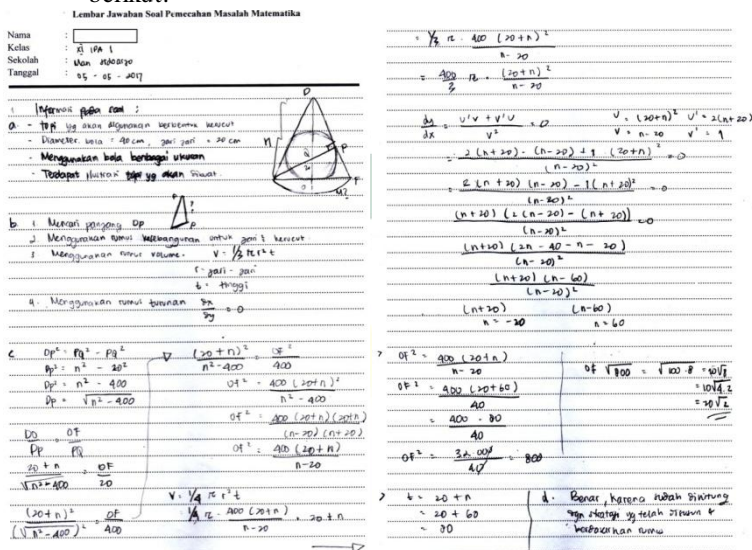 berikut.
Lembar Jawaban Soal Pemecahan Masalah Matematika
Nama :
Kelas : XI IPA 1
Sekolah : Man sidoarjo
Tanggal : 05 - 05 - 2017
1 Informasi pada soal :
a. - topi yg akan digunakan berbentuk kerucut
- Diameter bola = 40 cm, jari jari = 20 cm
- Menggunakan bola berbagai ukuran
- Terdapat ukuran topi yg akan dibuat.
b 1 Mencari panjang DP
2 Menggunakan rumus kesebangunan untuk jari2 kerucut
3 Menggunakan rumus volume. V = 1/3 πr²t
r = jari - jari
t = tinggi
4. Menggunakan rumus turunan = 0
c Dp² = PQ² - PQ²
Dp² = n² - 20²
Dp² = n² - 400
Dp = √n² - 400
DO/Dp = OF/PQ
20 + n/√n² + 400 = OF/20
(20 + n)²/(√n² - 400)² = OF/400
(20 + n)²/n² - 400 = OF²/400
OF² = 400 (20+n)²/n² - 400
OF² = 400 (20+n)(20+n)/(n-20)(n+20)
OF² = 400 (20+n)/n-20
V = 1/4 π r²t
1/4 π . 400 (20+n)/n-20 . 20+n
= 1/3 π . 400 (20+n)²/n-20
= 400/3 π . (20+n)²/n-20
dy/dx = u'v + v'u/v² = 0
U = (20+n)² U' = 2(n+20)
V = n-20 v' = 1
= 2(n+20) - (n-20) + 1 (20+n)²/(n-20)² = 0
= 2(n+20)(n-20) - 1(n+20)²/(n-20)² = 0
(n+20) (2(n-20) - (n+20))/(n-20)² = 0
(n+20) (2n - 40 - n - 20)/(n-20)²
(n+20) (n-60)/(n-20)²
(n+20) (n-60)
n = -20 n = 60
> OF² = 400 (20+n)/n-20
OF² = 400 (20+60)/40
= 400 . 80/40
OF² = 32.000/40 = 800
OF √800 = √100 . 8 = 10√8
= 10√4.2
= 20√2
> t = 20 + n
= 20 + 60
= 80
d. Benar, karena sudah dihitung
dgn strategi yg telah disusun &
berdasarkan rumus